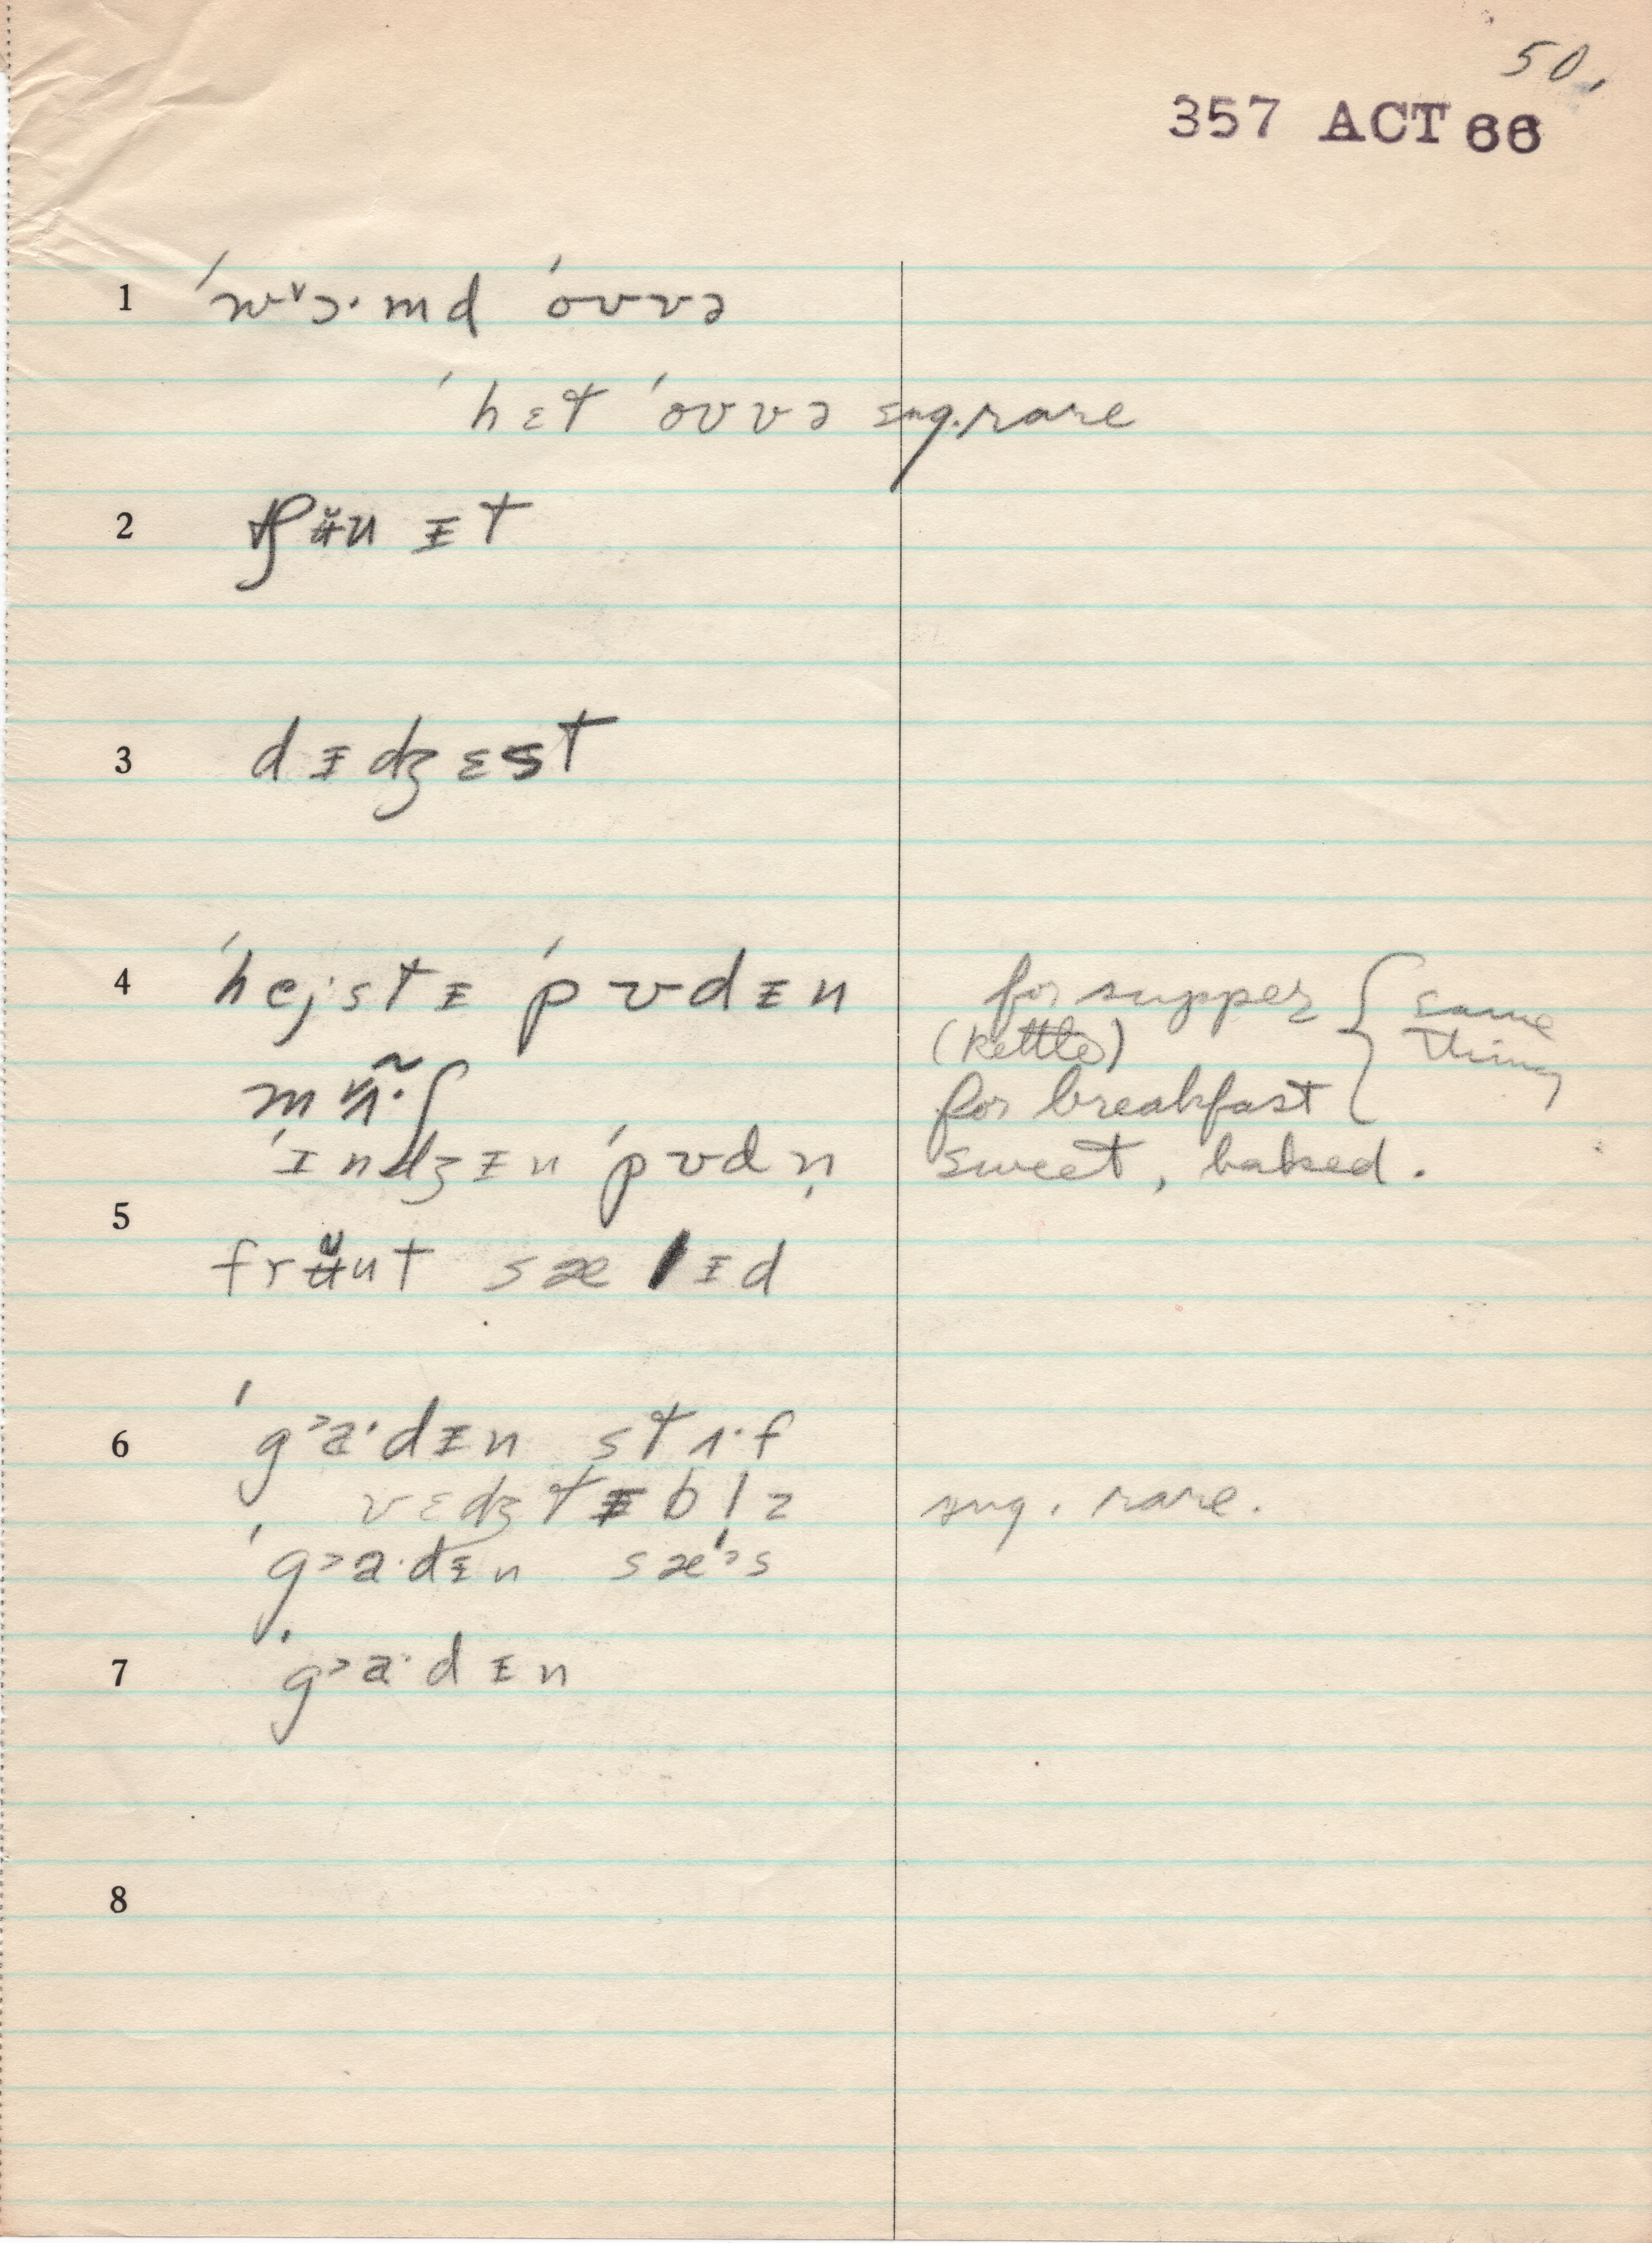 50.
357 ACT 66
1 ˈwᵛɔ·md ˈoʊvə
ˈhɛt ˈoʊvə sug. rare
2 tʃᵾ̆uᵻt
3 dᵻdʒɛst
4 ˈhejstᵻ ˈpʊdᵻn for supper { same
(kettle) thing
for breakfast
ˈɪndʒᵻn ˈpʊdn̩ sweet, baked.
5
frᵾ̆ut sælᵻd
6 ˈg˃a·dᵻn stʌ·f
vɛdʒtᵻbl̩z sug. rare.
ˈg˃a·dᵻn sæ˃s
7 ˈg˃a·dᵻn
8